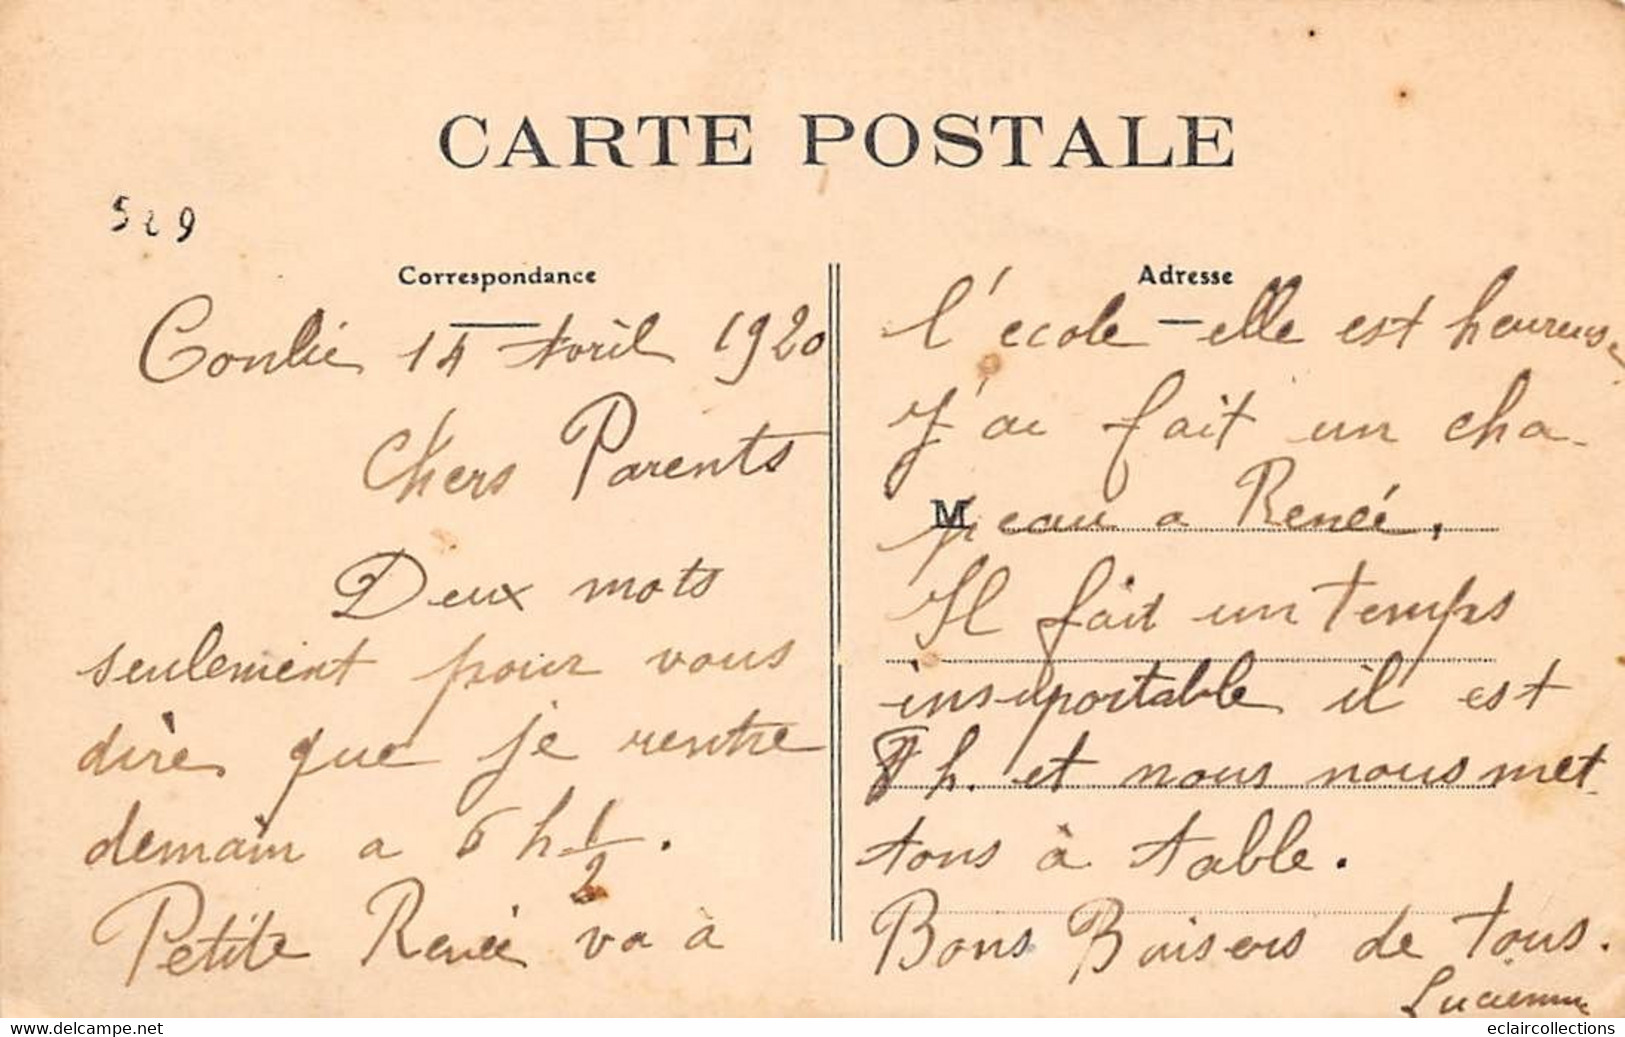 CARTE POSTALE
529
Correspondance
Conlie 14 Avril 1920
Chers Parents
Deux mots
seulement pour vous
dire que je rentre
demain a 6 h 1/2.
Petite Renée va à
Adresse
l'ecole - elle est heureuse
J'ai fait un cha-
M
peau a Renée,
Il fait un temps
insuportable il est
h. et nous nous met
tons à table.
Bons Baisers de tous.
Lucienne
delcampe.net
eclaircollections